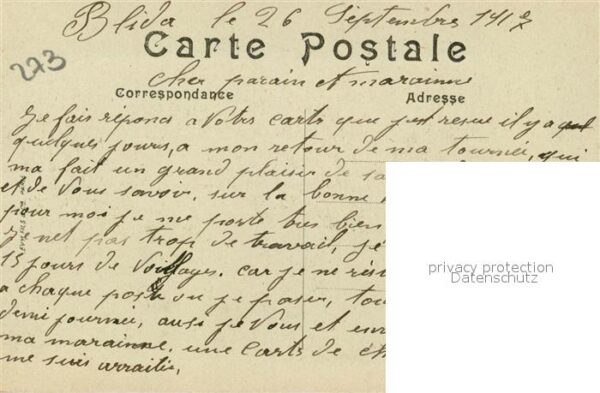 Blida le 26 Septembre 191
Carte Postale
273
cher parain et marainne
Correspondance
Adresse
Je fais répond a votre carte que jest resue il y a
quelques jours, a mon retour de ma tournée, qui
ma fait un grand plaisir de
et de vous savoir, sur la bonne
pour moi je me porte tres bien
Je net pas trop de travail, je
15 jours de voillages, car je ne
a chaque poste ou je passer,
demi journée, ausi je vous et
ma marainne, une carte de
me suis arraitie,
privacy protection
Datenschutz